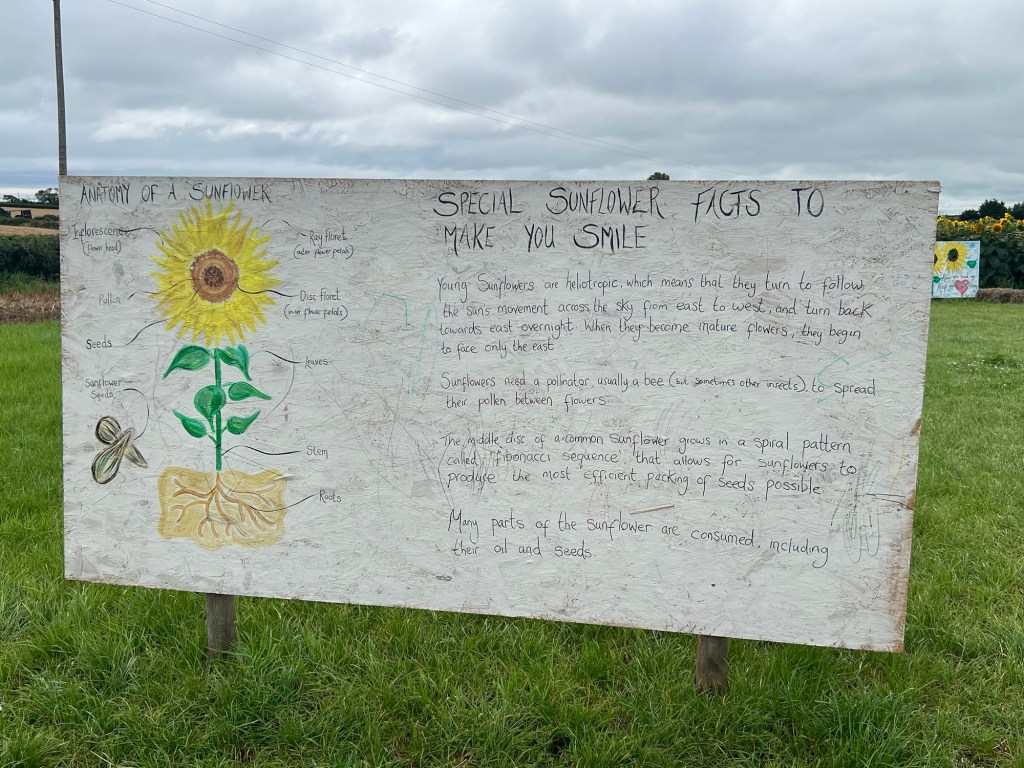 ANATOMY OF A SUNFLOWER
Inflorescence
(flower head)
Ray floret
(outer flower petals)
Pollen
Disc floret
(inner flower petals)
Seeds
leaves
Sunflower
Seeds
Stem
Roots
SPECIAL SUNFLOWER FACTS TO
MAKE YOU SMILE
Young Sunflowers are heliotropic, which means that they turn to follow
the sun's movement across the sky from east to west, and turn back
towards east overnight. When they become mature flowers, they begin
to face only the east.
Sunflowers need a pollinator, usually a bee (but sometimes other insects), to spread
their pollen between flowers.
The middle disc of a common sunflower grows in a spiral pattern
called 'fibonacci sequence' that allows for sunflowers to
produce the most efficient packing of seeds possible.
Many parts of the sunflower are consumed, including
their oil and seeds.